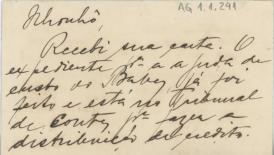 AG 1.1.241
Nhonhô,
Recebi sua carta. O
expediente pª a ajuda de
custo do Baby já foi
feito e está no Tribunal
de Contas pª fazer a
distribuição de credito.